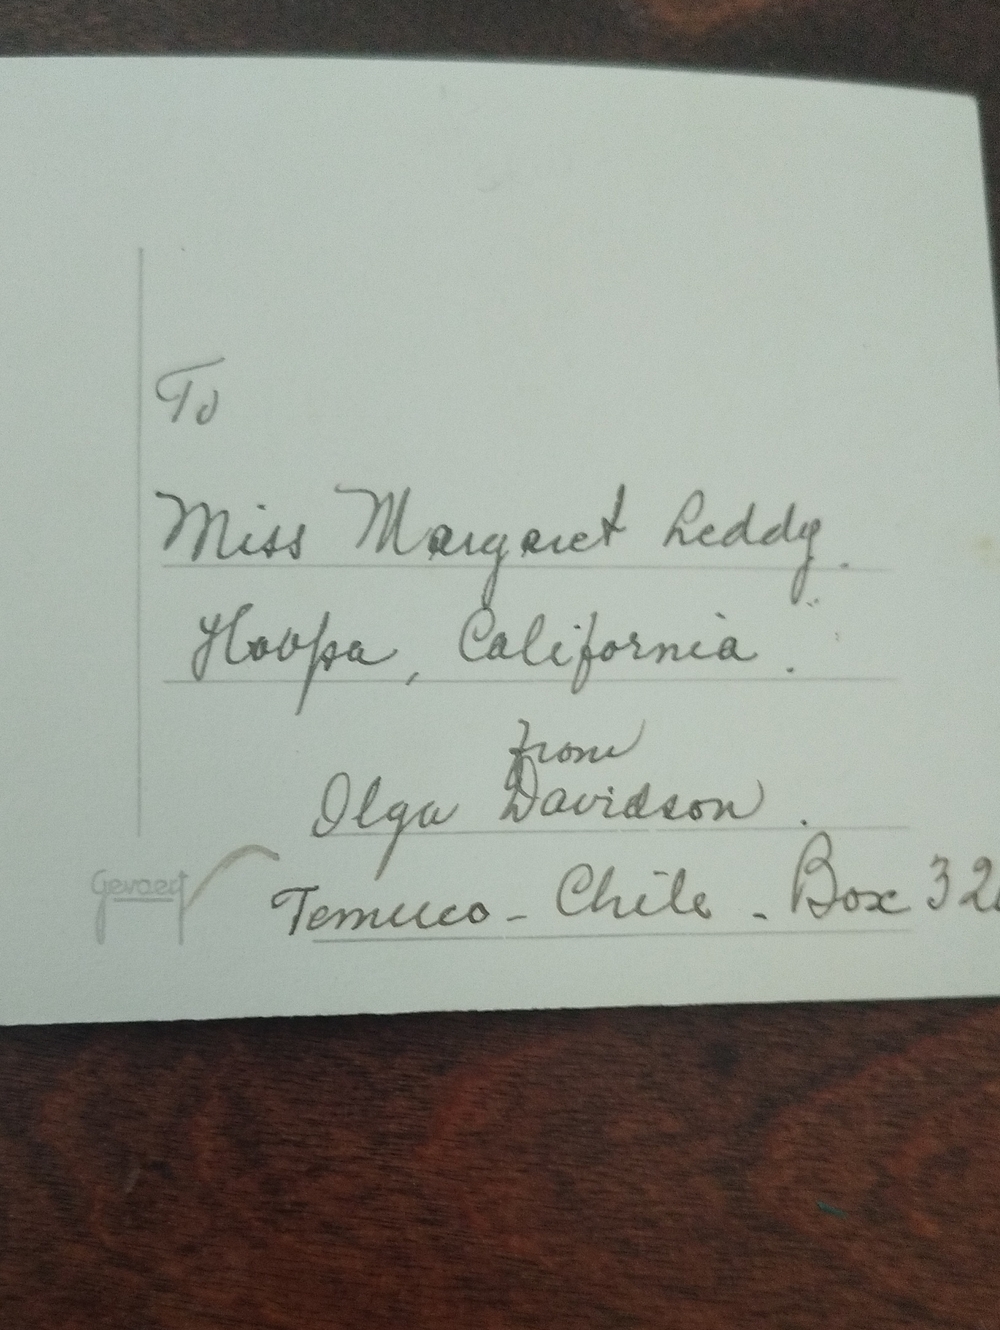 To
Miss Margaret Leddy.
Hoopa, California.
from
Olga Davidson.
Gevaert
Temuco - Chile - Box 32